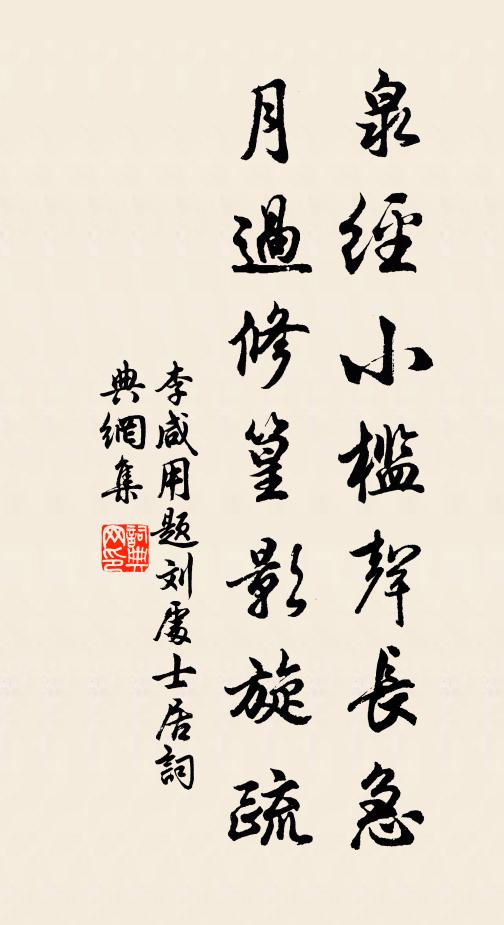 泉經小檻聲長急
月過修篁影旋疏
李咸用題刘處士居詞
典網集
詞典
网印